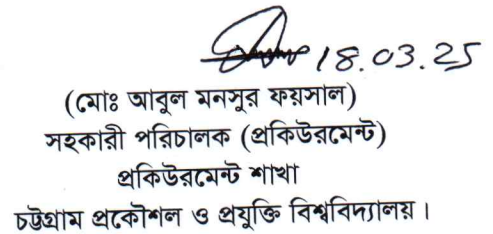 18.03.25
(মোঃ আবুল মনসুর ফয়সাল)
সহকারী পরিচালক (প্রকিউরমেন্ট)
প্রকিউরমেন্ট শাখা
চট্টগ্রাম প্রকৌশল ও প্রযুক্তি বিশ্ববিদ্যালয়।